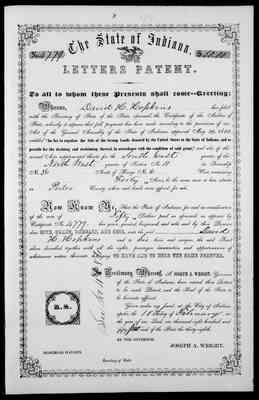 The State of Indiana,
LETTERS PATENT.
To all to whom these Presents shall come--Greeting:
Whereas, David H. Hopkins has filed
with the Secretary of State of the State aforesaid the Certificate of the Auditor of
State, whereby it appears that full payment has been made according to the provisions of an
Act of the General Assembly of the State of Indiana, approved May
entitled "An Act to regulate the Sale of the Swamp Lands donated by the United States to the State of Indiana, and to
provide for the draining and reclaiming thereof in accordance with the condition of said grant," and the
second Acts supplemental thereto for the North East quarter of the
North West quarter of Section No. in Township
No. 36 North of Range No. 6 West containing
Forty Acres be the same more or less situate
in Porter County, where such lands were offered for sale.
Now Know Ye, that the State of Indiana, for and in consideration
of the sum of Fifty Dollars paid as aforesaid as appears by
Certificate No. 4779 has given, granted, bargained and sold and by these Presents
does GIVE, GRANT, BARGAIN, AND SELL, unto the said David
H. Hopkins and to his heirs and assigns, the said Tract
above described together with all the rights, privileges, immunities and appurtenances of
whatsoever nature thereunto belonging TO HAVE AND TO HOLD THE SAME FOREVER.
In Testimony Whereof, I, JOSEPH A. WRIGHT, Governor
of the State of Indiana, have caused this Letters
to be made Patent, and the Seal of the State to
be hereunto affixed.
Given under my hand, at the City of Indianapolis
the 18 day of February in
the year of our Lord, one thousand eight hundred and
fifty and of the State the thirty-eighth.
BY THE GOVERNOR,
JOSEPH A. WRIGHT.
Secretary of State